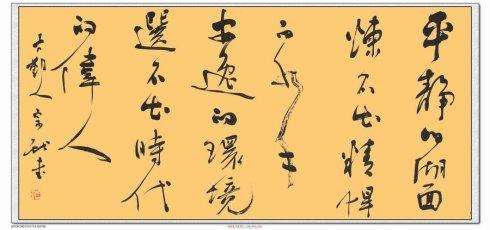 平靜的湖面
煉不出精悍
的水手
安逸的環境
造不出時代
的偉人